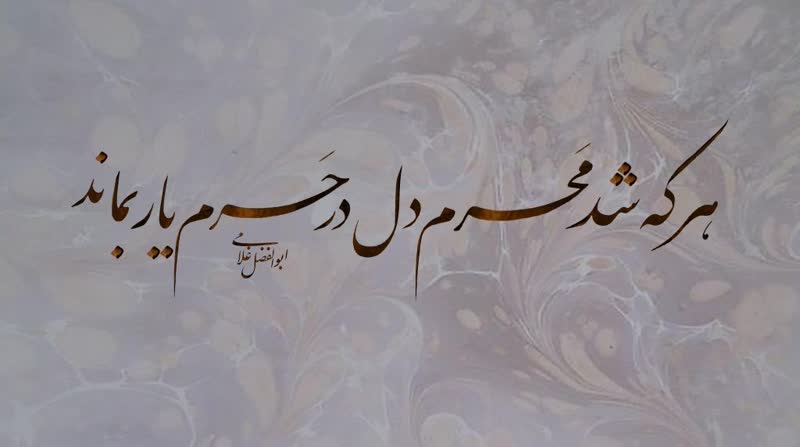 هر که شد مَحرم دل در حَرم یار بماند
ابوالفضل غلامی